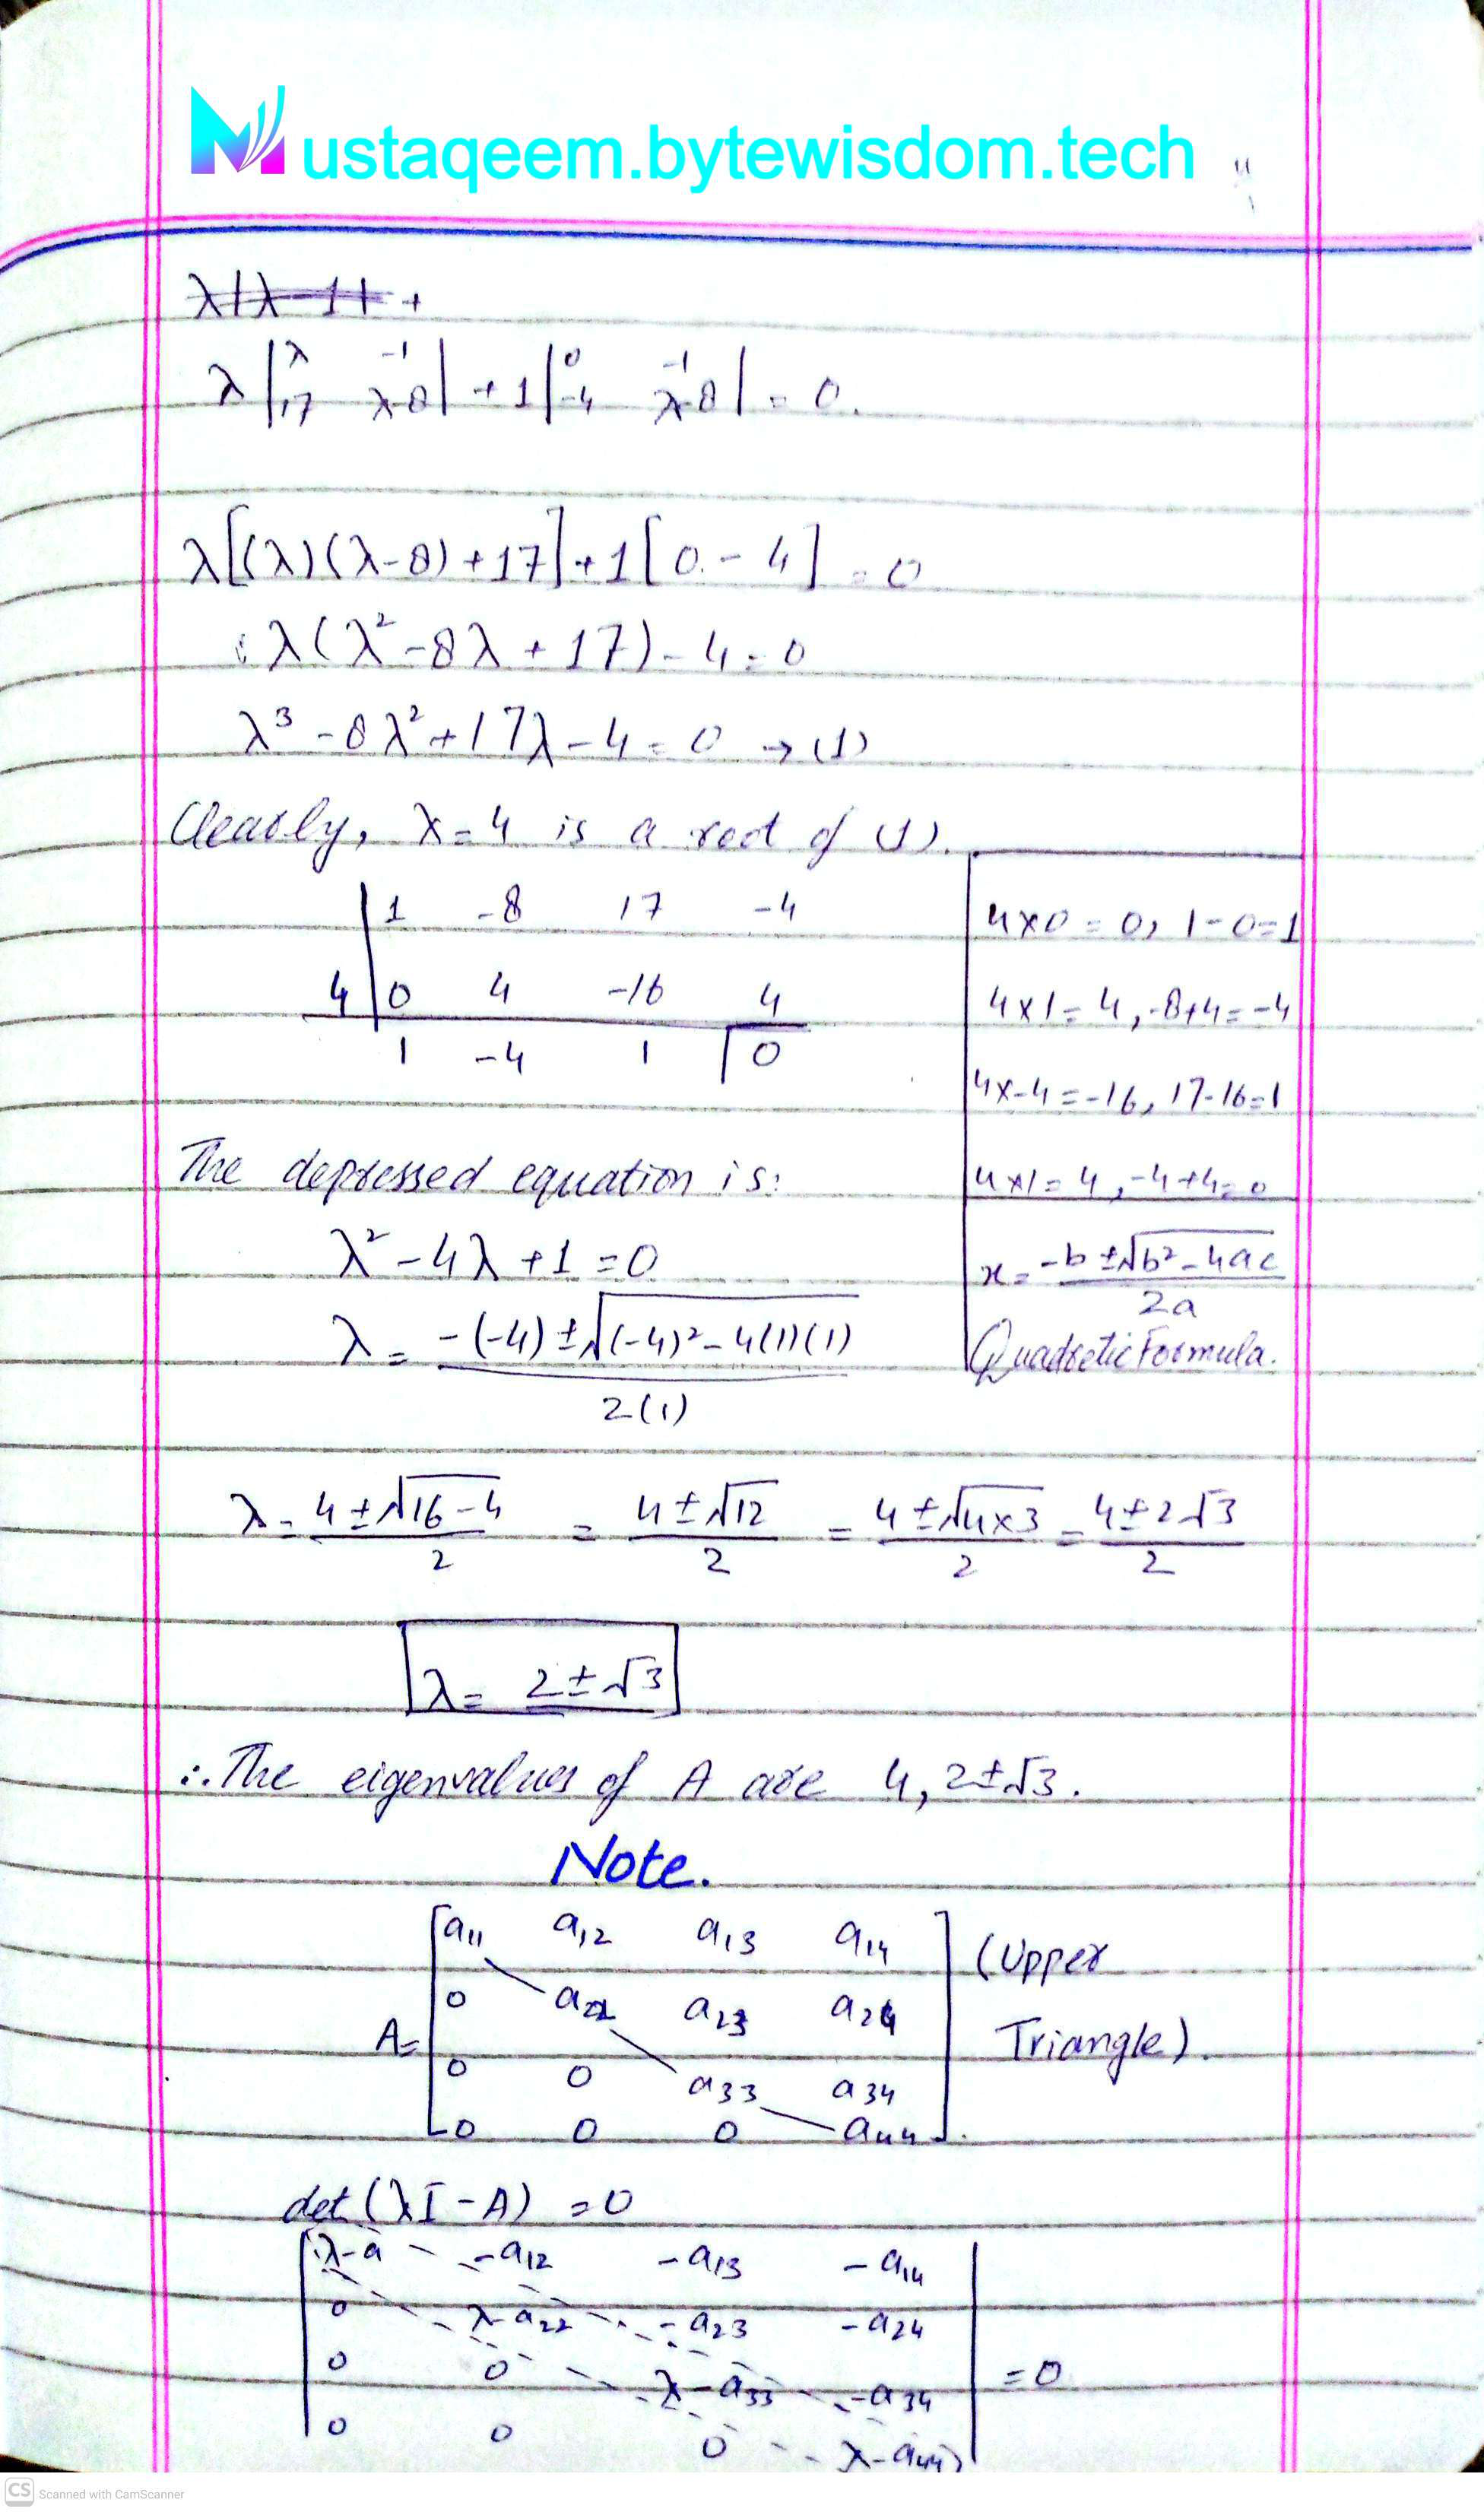 Mustaqeem.bytewisdom.tech
λ|λ-1| +
λ |λ -1| + 1 |0 -1| = 0.
|17 λ-8| |-4 λ-8|
λ[(λ)(λ-8)+17]+1[0-4] = 0
λ(λ²-8λ+17)-4=0
λ³-8λ²+17λ-4=0 → (1)
Clearly, λ=4 is a root of (1).
1 -8 17 -4
4 0 4 -16 4
1 -4 1 0
4x0 = 0, 1-0=1
4x1=4, -8+4=-4
4x-4=-16, 17-16=1
4x1=4, -4+4=0
x = -b±√b²-4ac
2a
Quadretic Formula.
The depressed equation is:
λ²-4λ+1=0
λ = -(-4)±√(-4)²-4(1)(1)
2(1)
λ = 4±√16-4 = 4±√12 = 4±√4x3 = 4±2√3
2 2 2 2
λ = 2±√3
∴ The eigenvalues of A are 4, 2±√3.
Note.
a11 a12 a13 a14 (Upper
0 a22 a23 a24
A= 0 0 a33 a34 Triangle).
0 0 0 a44
det(λI-A) = 0
λ-a -a12 -a13 -a14
0 λ-a22 -a23 -a24
0 0 λ-a33 -a34 =0
0 0 0 λ-a44
CS Scanned with CamScanner